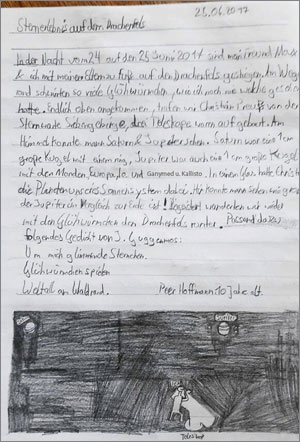 25.06.2017
Sternerlebnis auf dem Drachenfels
In der Nacht vom 24 auf den 25 Juni 2017 sind mein Freund
& ich mit meinen Eltern zu Fuß auf den Drachenfels gestiegen. Am Weg
rand schwirrten so viele Glühwürmchen, wie ich noch nie welche gesehen
hatte. Endlich oben angekommen, trafen wir Christian Preuß von der
Sternwarte Siebengebirge, drei Teleskope waren aufgebaut. Am
Himmel konnte man Saturn & Jupiter sehen. Saturn war eine 1cm
große Kugel mit einem ring, Jupiter war auch eine 1cm große Kugel
mit den Monden, Europa, Io und Ganymed u. Kallisto. In einem Glas hatte Christi
die Planeten unseres Sonnensystem dabei. Da konnte man sehen wie groß
der Jupiter im Vergleich zur Erde ist! Begeistert wanderten wir wieder
mit den Glühwürmchen den Drachenfels runter. Passend dazu
folgendes Gedicht von J. Guggenmos:
Um mich glimmende Sternchen.
Glühwürmchen spielen
Weltall am Waldrand. Peer Hoffmann: 10 Jahre alt.
Jupiter
Teleskop